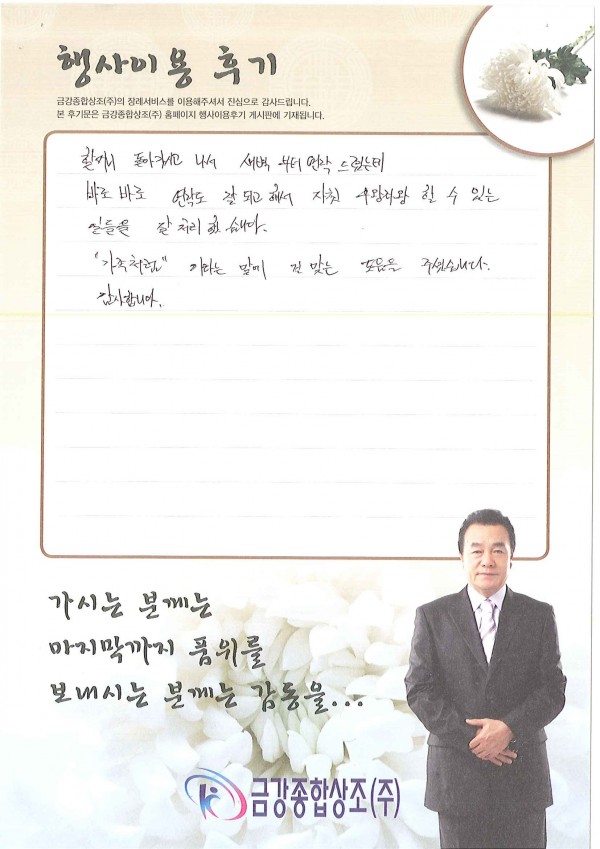 행사이용 후기
금강종합상조(주)의 장례서비스를 이용해주셔서 진심으로 감사드립니다.
본 후기문은 금강종합상조(주) 홈페이지 행사이용후기 게시판에 기재됩니다.
돌아가시고 나서 새벽 부터 연락 드렸는데
바로 바로 연락도 잘 되고 해서 자칫 우왕좌왕 할 수 있는
일들을 잘 처리 했습니다.
"가족처럼" 이라는 말에 걸 맞는 도움을 주셨습니다.
감사합니다.
가시는 분께는
마지막까지 품위를
보내시는 분께는 감동을...
금강종합상조(주)